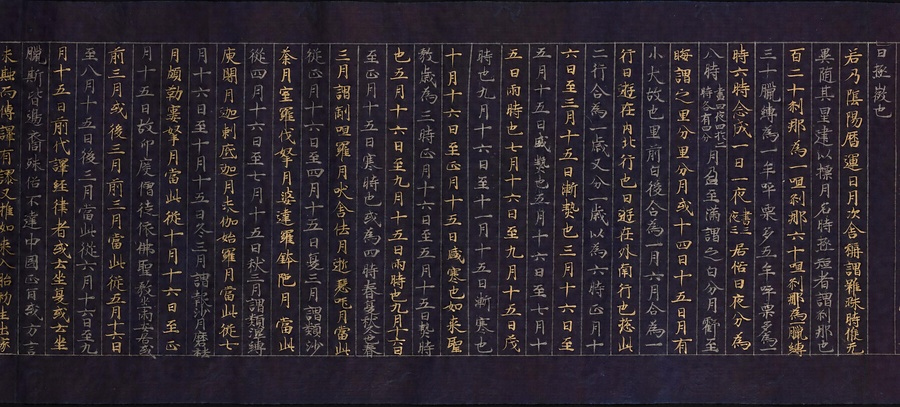 曰極微也
若乃陰陽曆運日月次舍稱謂雖殊時候无
異隨其星建以標月名時極短者謂剎那也
百二十剎那為一呾剎那六十呾剎那為臘縛
三十臘縛為一牟呼栗多五牟呼栗多為一
時六時合成一日一夜晝三夜三居俗日夜分為
八時晝四夜四於一一時各有四分月盈至滿謂之白分月虧至
晦謂之黑分黑分月或十四日十五日月有
小大故也黑前白後合為一月六月合為一
行日遊在內北行也日遊在外南行也總此
二行合為一歲又分一歲以為六時正月十
六日至三月十五日漸熱也三月十六日至
五月十五日盛熱也五月十六日至七月十
五日雨時也七月十六日至九月十五日茂
時也九月十六日至十一月十五日漸寒也
十月十六日至正月十五日盛寒也如來聖
教歲為三時正月十六日至五月十五日熱時
也五月十六日至九月十五日雨時也九月十六日
至正月十五日寒時也或為四時春夏秋冬也春
三月謂制呾羅月吠舍佉月逝瑟吒月當此
從正月十六日至四月十五日夏三月謂頞沙
荼月室羅伐拏月婆達羅鉢陀月當此
從四月十六日至七月十五日秋三月謂頞濕縛
庾闍月迦剌底迦月末伽始羅月當此從七
月十六日至十月十五日冬三月謂報沙月磨祛
月頗勒窶拏月當此從十月十六日至正
月十五日故印度僧徒依佛聖教坐雨安居或
前三月或後三月前三月當此從五月十六日
至八月十五日後三月當此從六月十六日至九
月十五日前代譯經律者或云坐夏或云坐
臘斯皆邊裔殊俗不達中國正音或方言
未融而傳譯有謬又推如來入胎初生出家